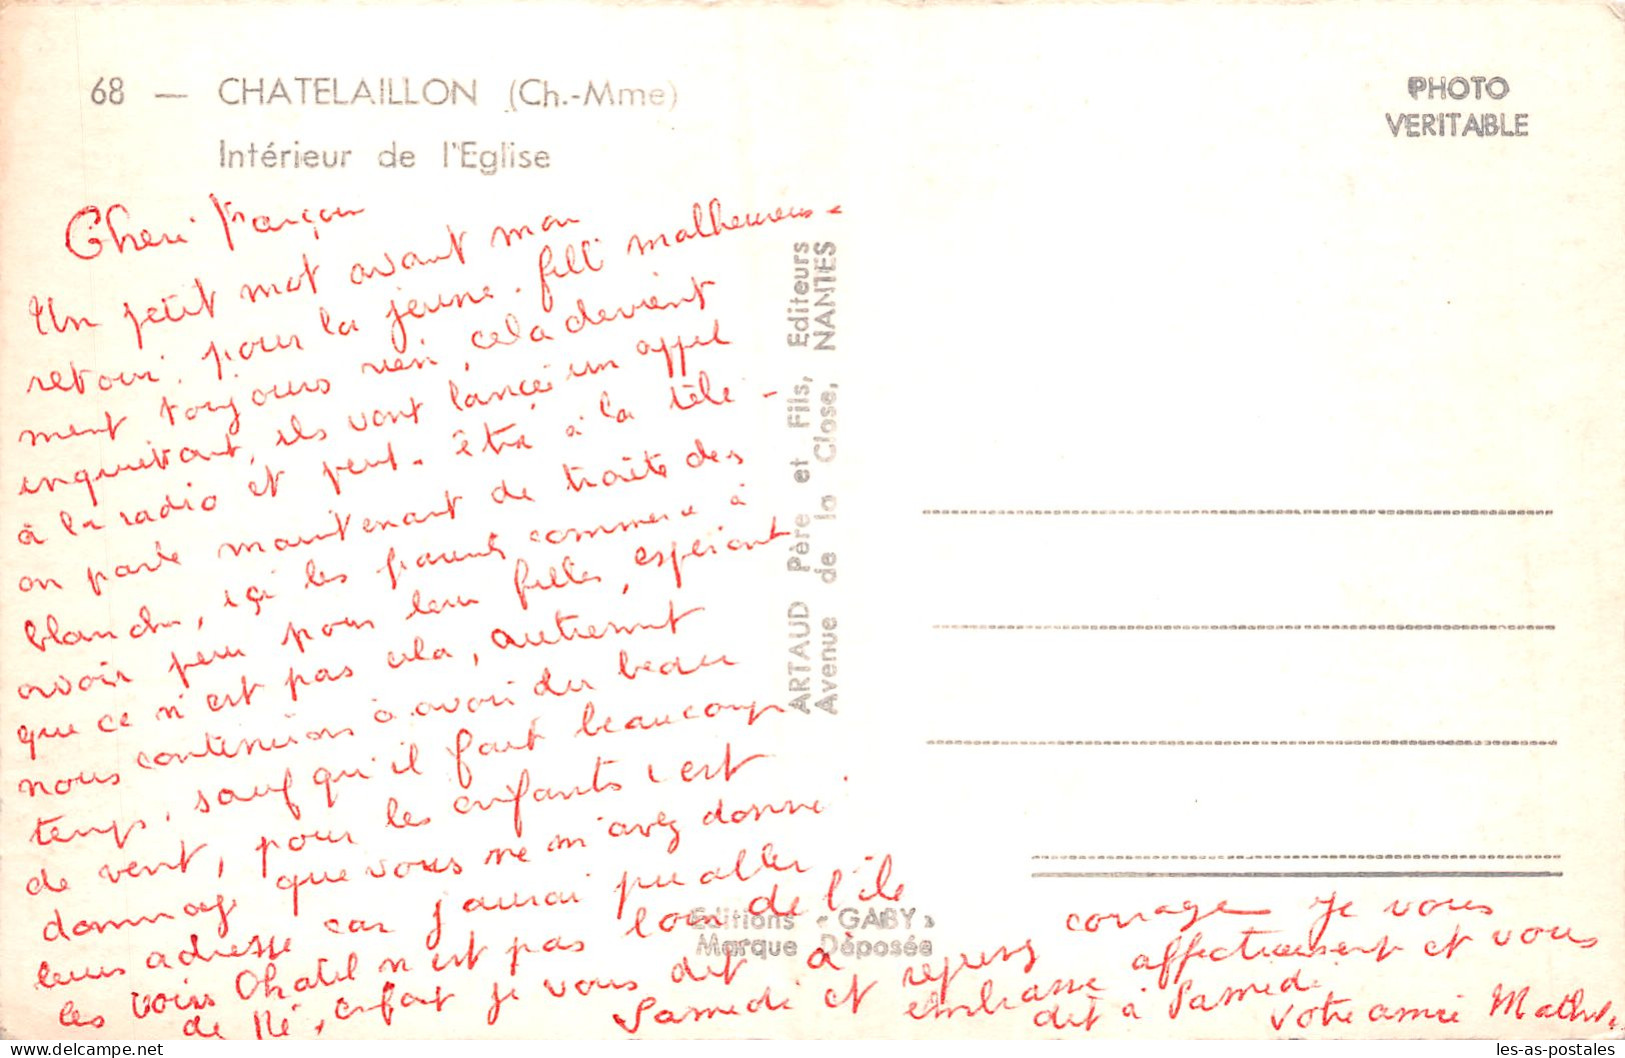 68 — CHATELAILLON (Ch.-Mme)
Intérieur de l'Eglise
PHOTO
VERITABLE
Cheri
Un petit mot avant mon
retour. pour la jeune. fill malheureuse-
ment toujours rien, cela devient
inquietant, ils vont lancée un appel
à la radio et peut-être à la télé-
on parle maintenant de traite des
blanche, içi les parents commence à
avoir peur pour leur filles, espérant
que ce n'est pas cela, autrement
nous continuons à avoir du beau
temps, sauf qu'il faut beaucoup
de vent, pour les enfants c'est
dommage que vous ne m'avez donné
leurs adresse car j'aurai pu aller
les voirs Chatel n'est pas loin de l'ile
de Ré, enfait je vous dit à
Samedi et reprenez courage je vous
embrasse affectueusement et vous
dit à Samedi
votre amie
ARTAUD Père et Fils, Editeurs
Avenue de la Close, NANTES
Editions « GABY »
Marque Déposée
les-as-postales